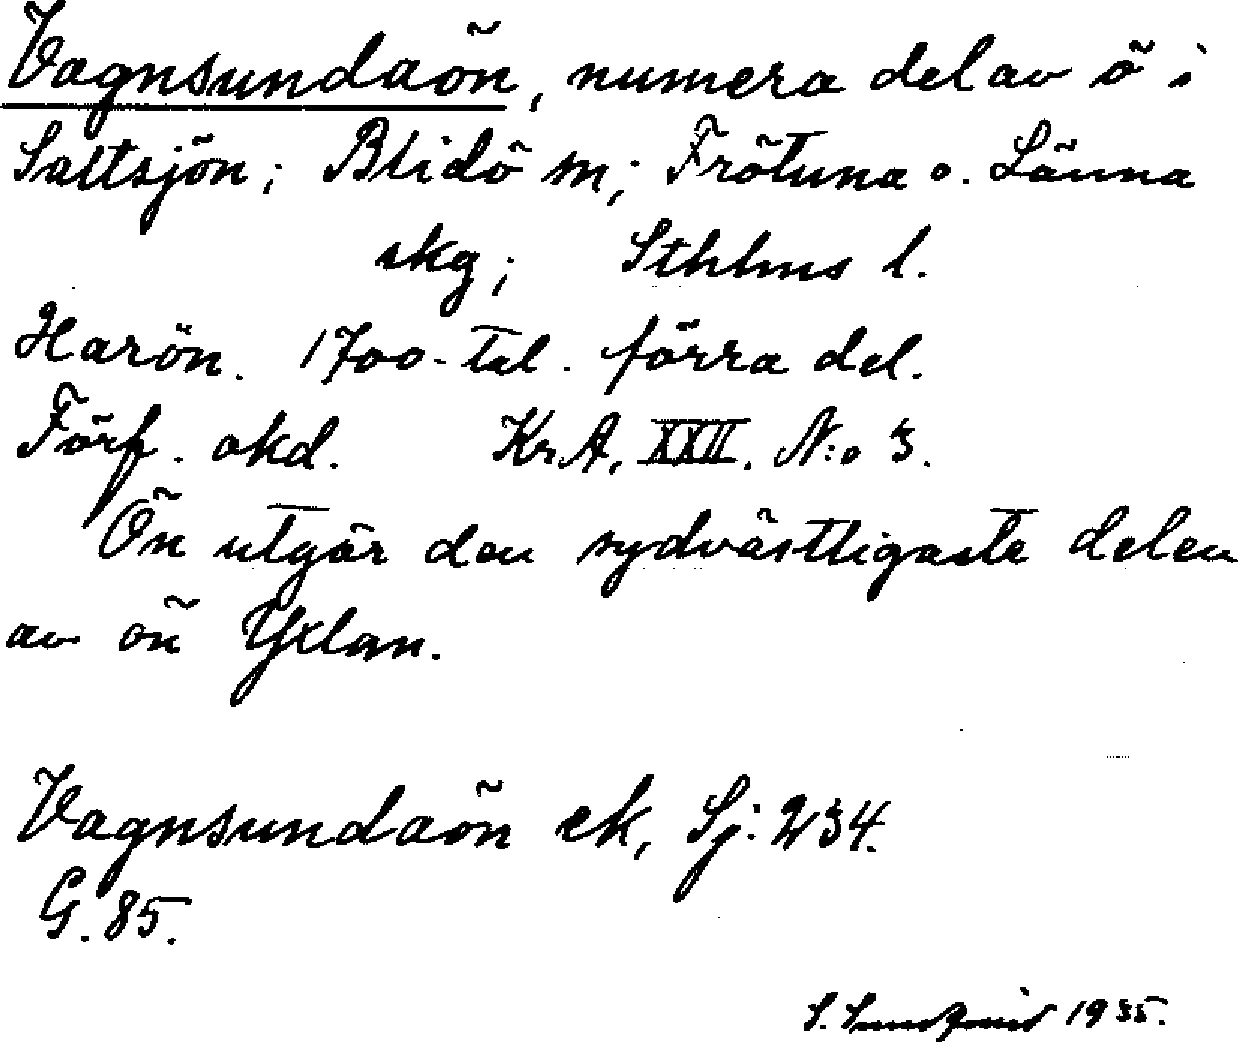 Vagnsundaön, numera del av ö i
Saltsjön; Blidö sn; Frötuna o. Länna
skg; Sthlms l.
Harön. 1700-tal. förra del.
Förf. okd. Kr.A. XXII. N:o 3.
Ön utgör den sydvästligaste delen
av ön Yxlan.
Vagnsundaön ek, Sj: 234.
G. 85.
S. Sundqvist 1935.